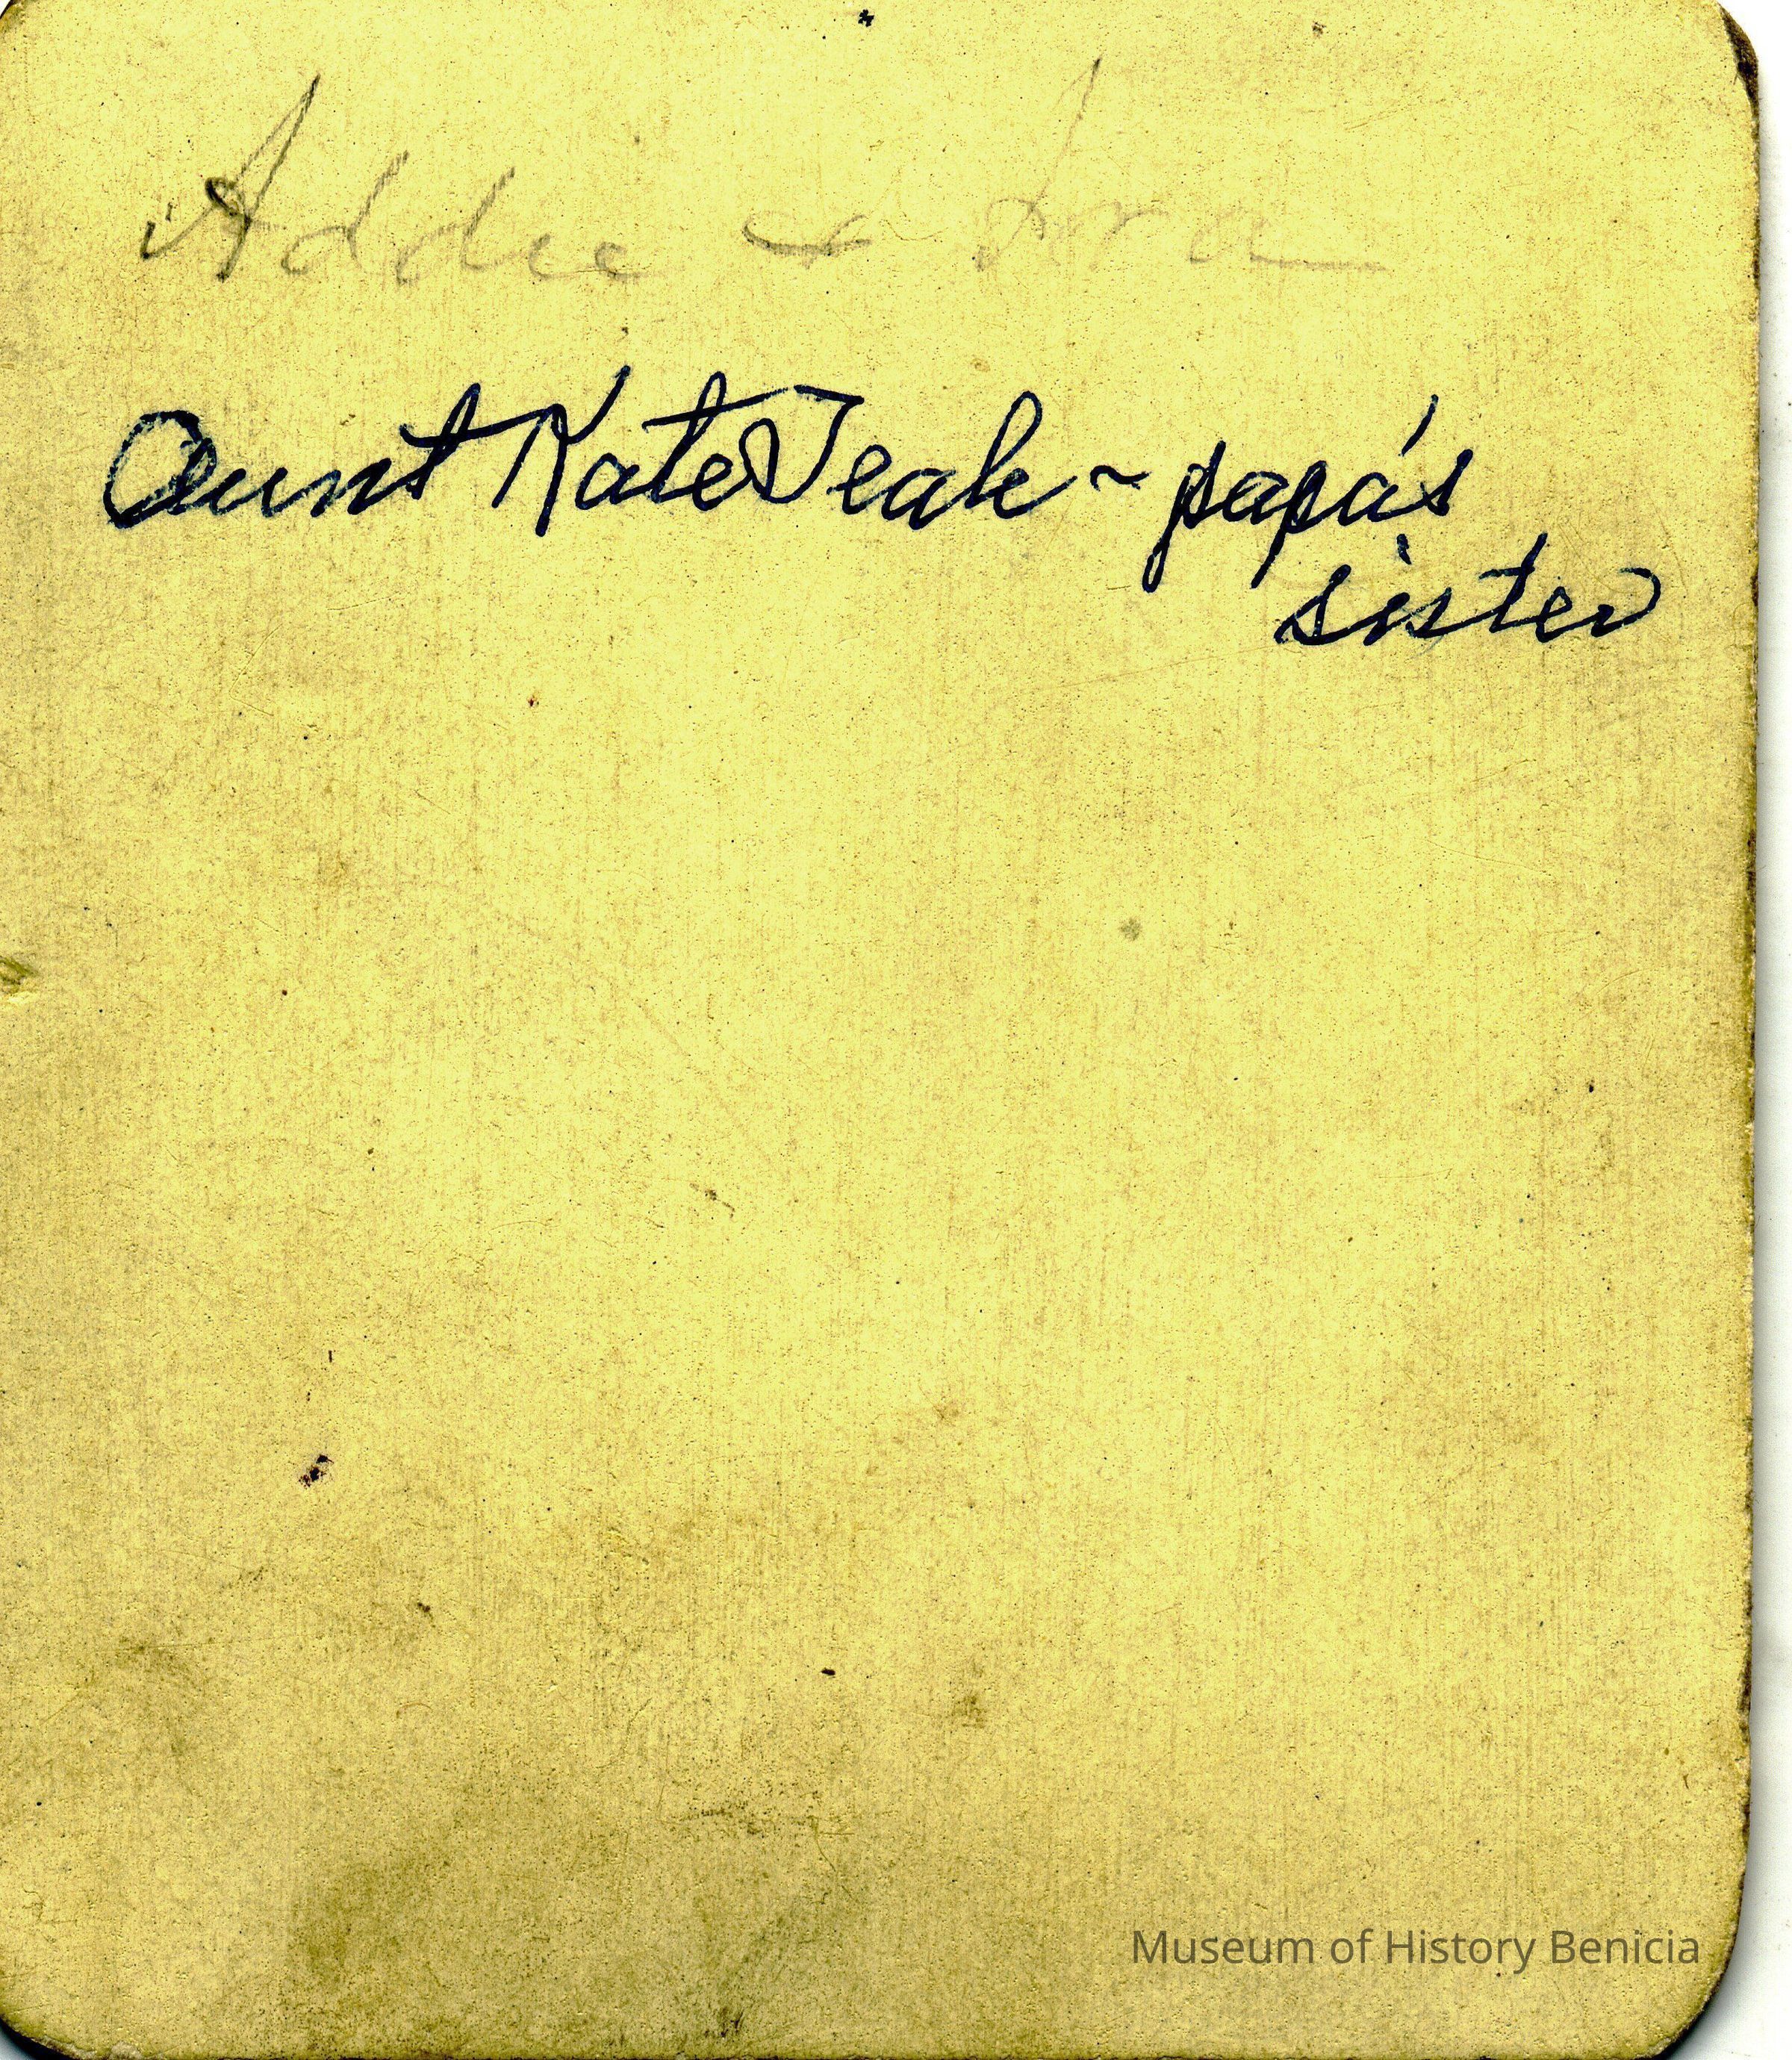 Addie & Ira
Aunt Kate Teak ~ papa's
sister
Museum of History Benicia